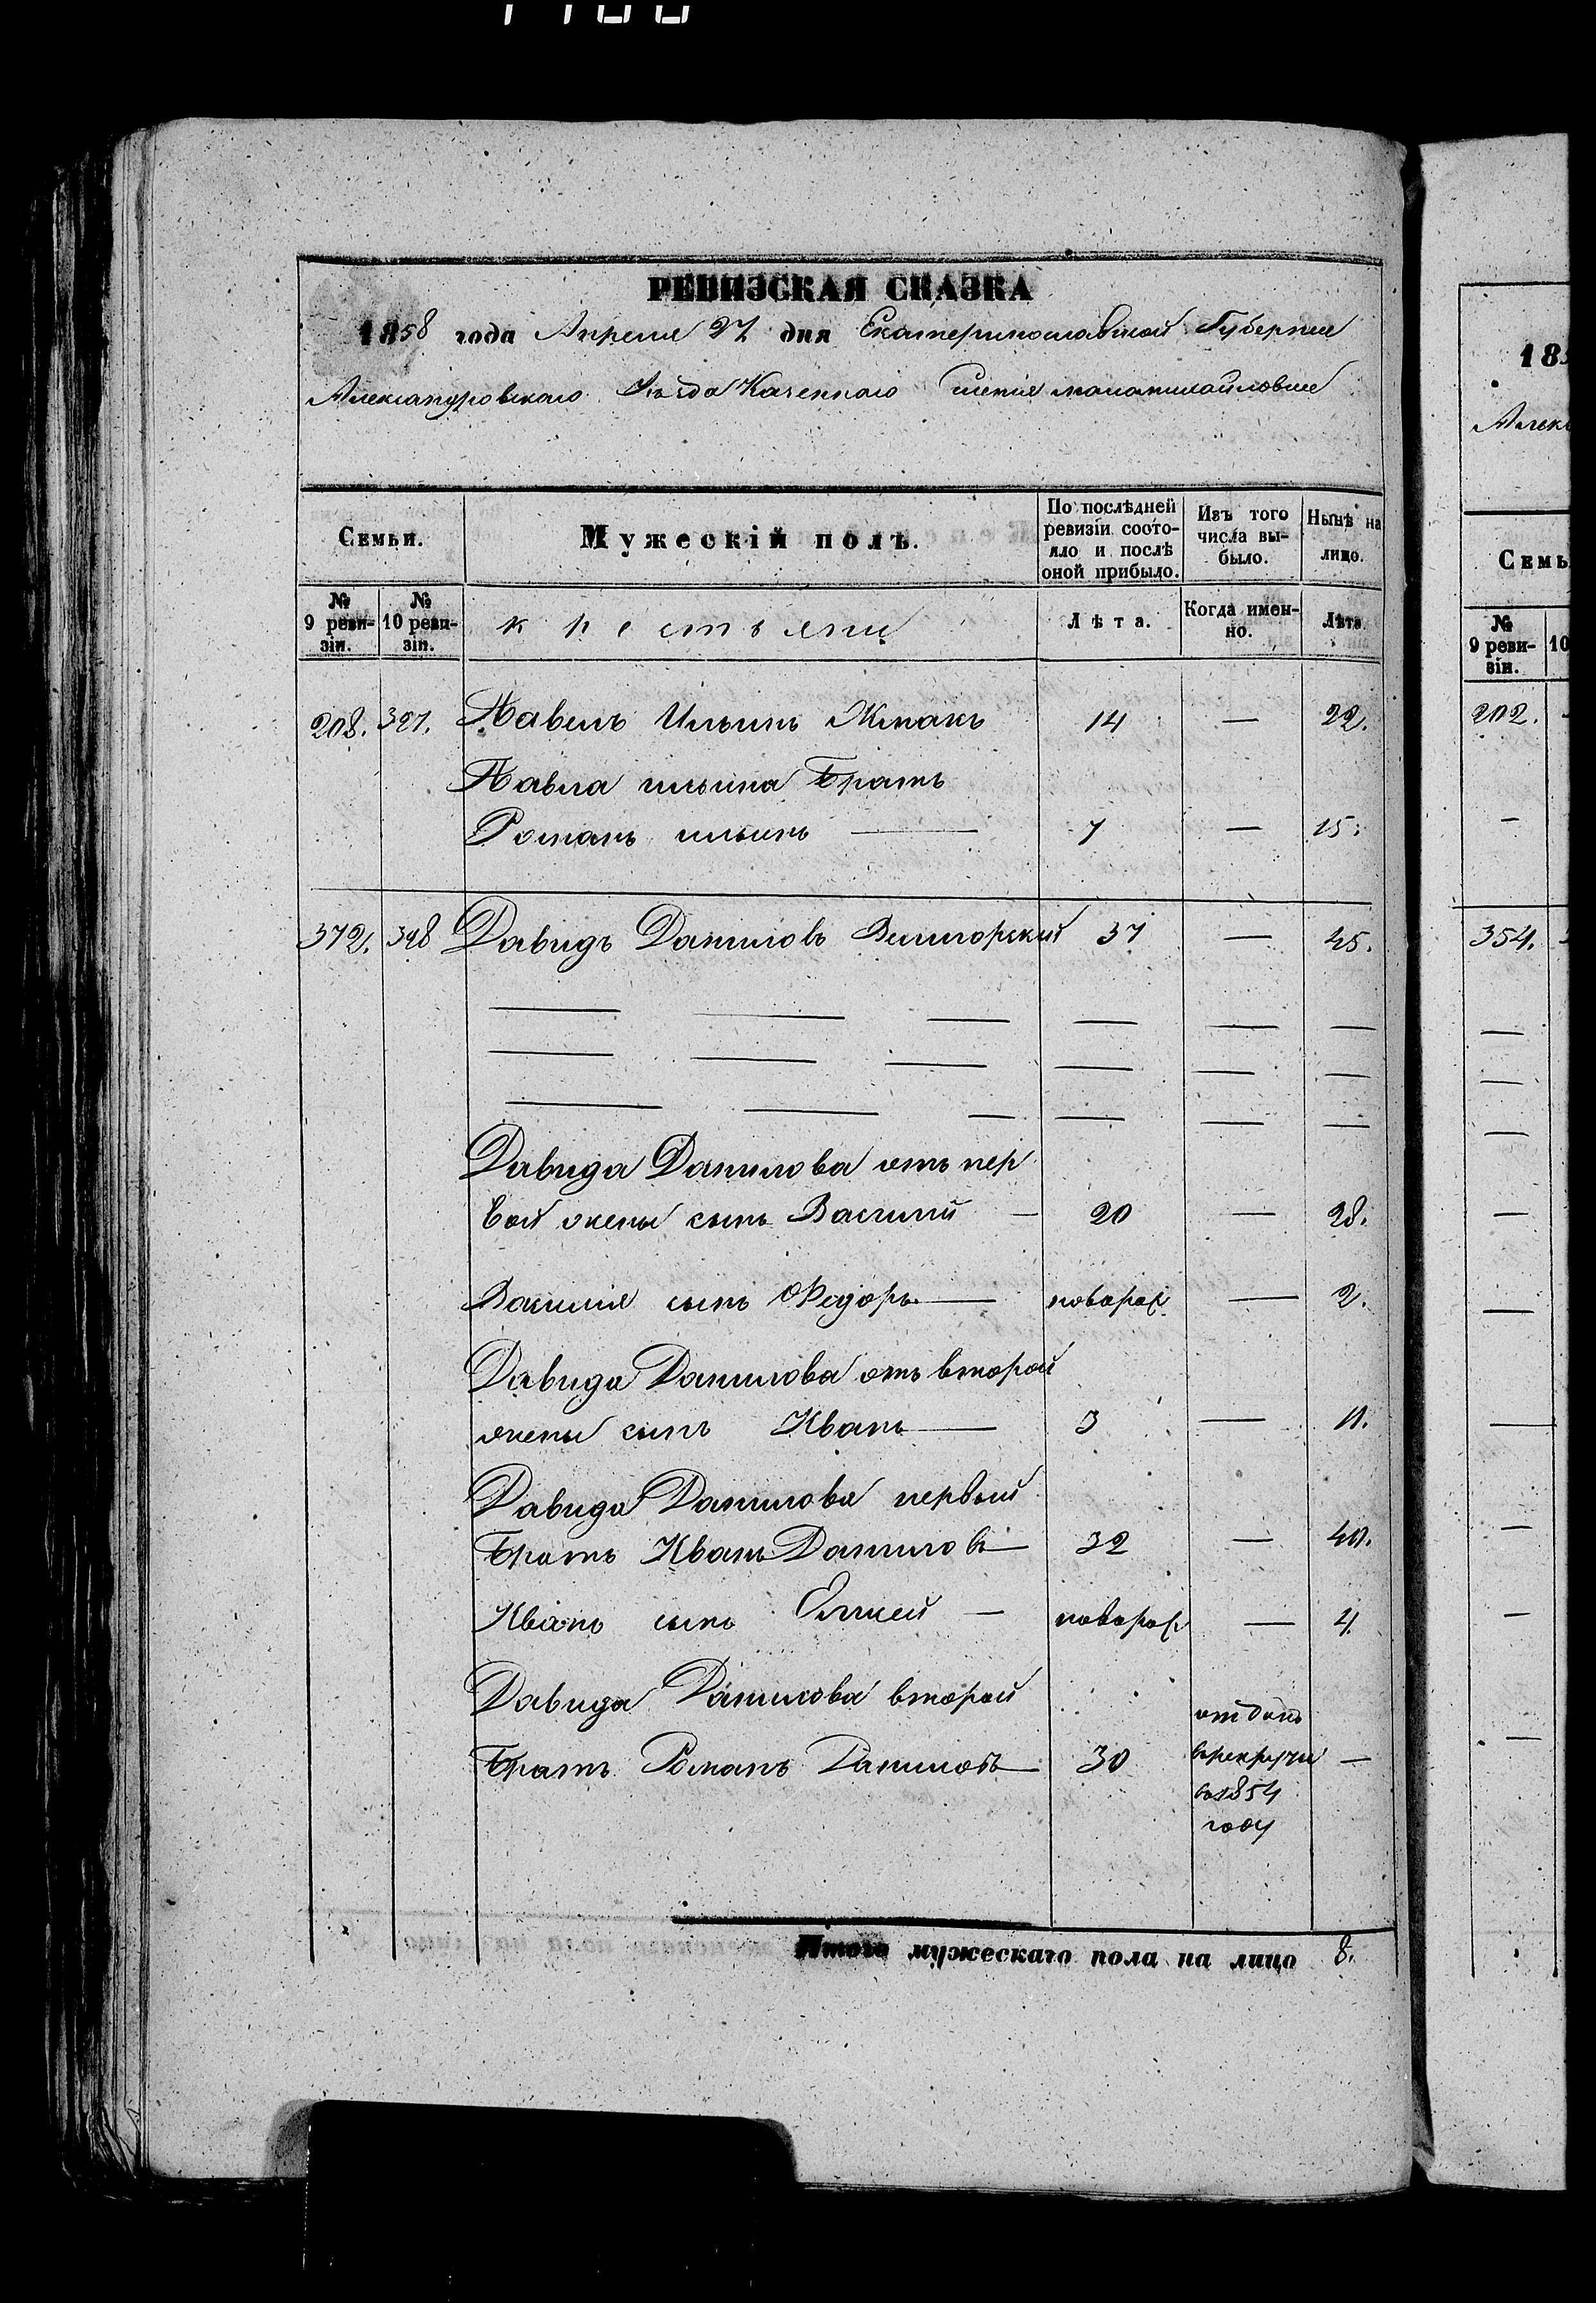 РЕВИЗСКАЯ СКАЗКА
1858 года Апреля 27 дня Екатеринославской Губернии
Александровскаго Уѣзда Казеннаго
Семьи.
Мужескій полъ.
По послѣдней ревизіи состо-
яло и послѣ
оной прибыло.
Изъ того
числа вы-
было.
Нынѣ на
лицо.
№
9 реви-
зіи.
№
10 реви-
зіи.
крестьяни
Лѣта.
Когда имен-
но.
Лѣта.
208. 397. Павелъ Ильинъ Жмакъ 14 — 22.
Павла ильина Братъ
Романъ ильинъ — 7 — 15.
372. 398 Давидъ Даниловъ 37 — 45.
Давида Данилова отъ пер
вой жены сынъ Василий — 20 — 28.
Василия сынъ Федоръ — новорож — 2.
Давида Данилова отъ второй
жены сынъ Иванъ — 3 — 11.
Давида Данилова первый
Братъ Иванъ Даниловъ — 32 — 40.
Иванъ сынъ — новорож — 4.
Давида Данилова второй
Братъ Романъ Даниловъ — 30 отданъ
врекруты —
в1854
году
Итого мужескаго пола на лицо 8.
183
Алекс
Семь
№
9 реви-
зіи.
10
202.
354.